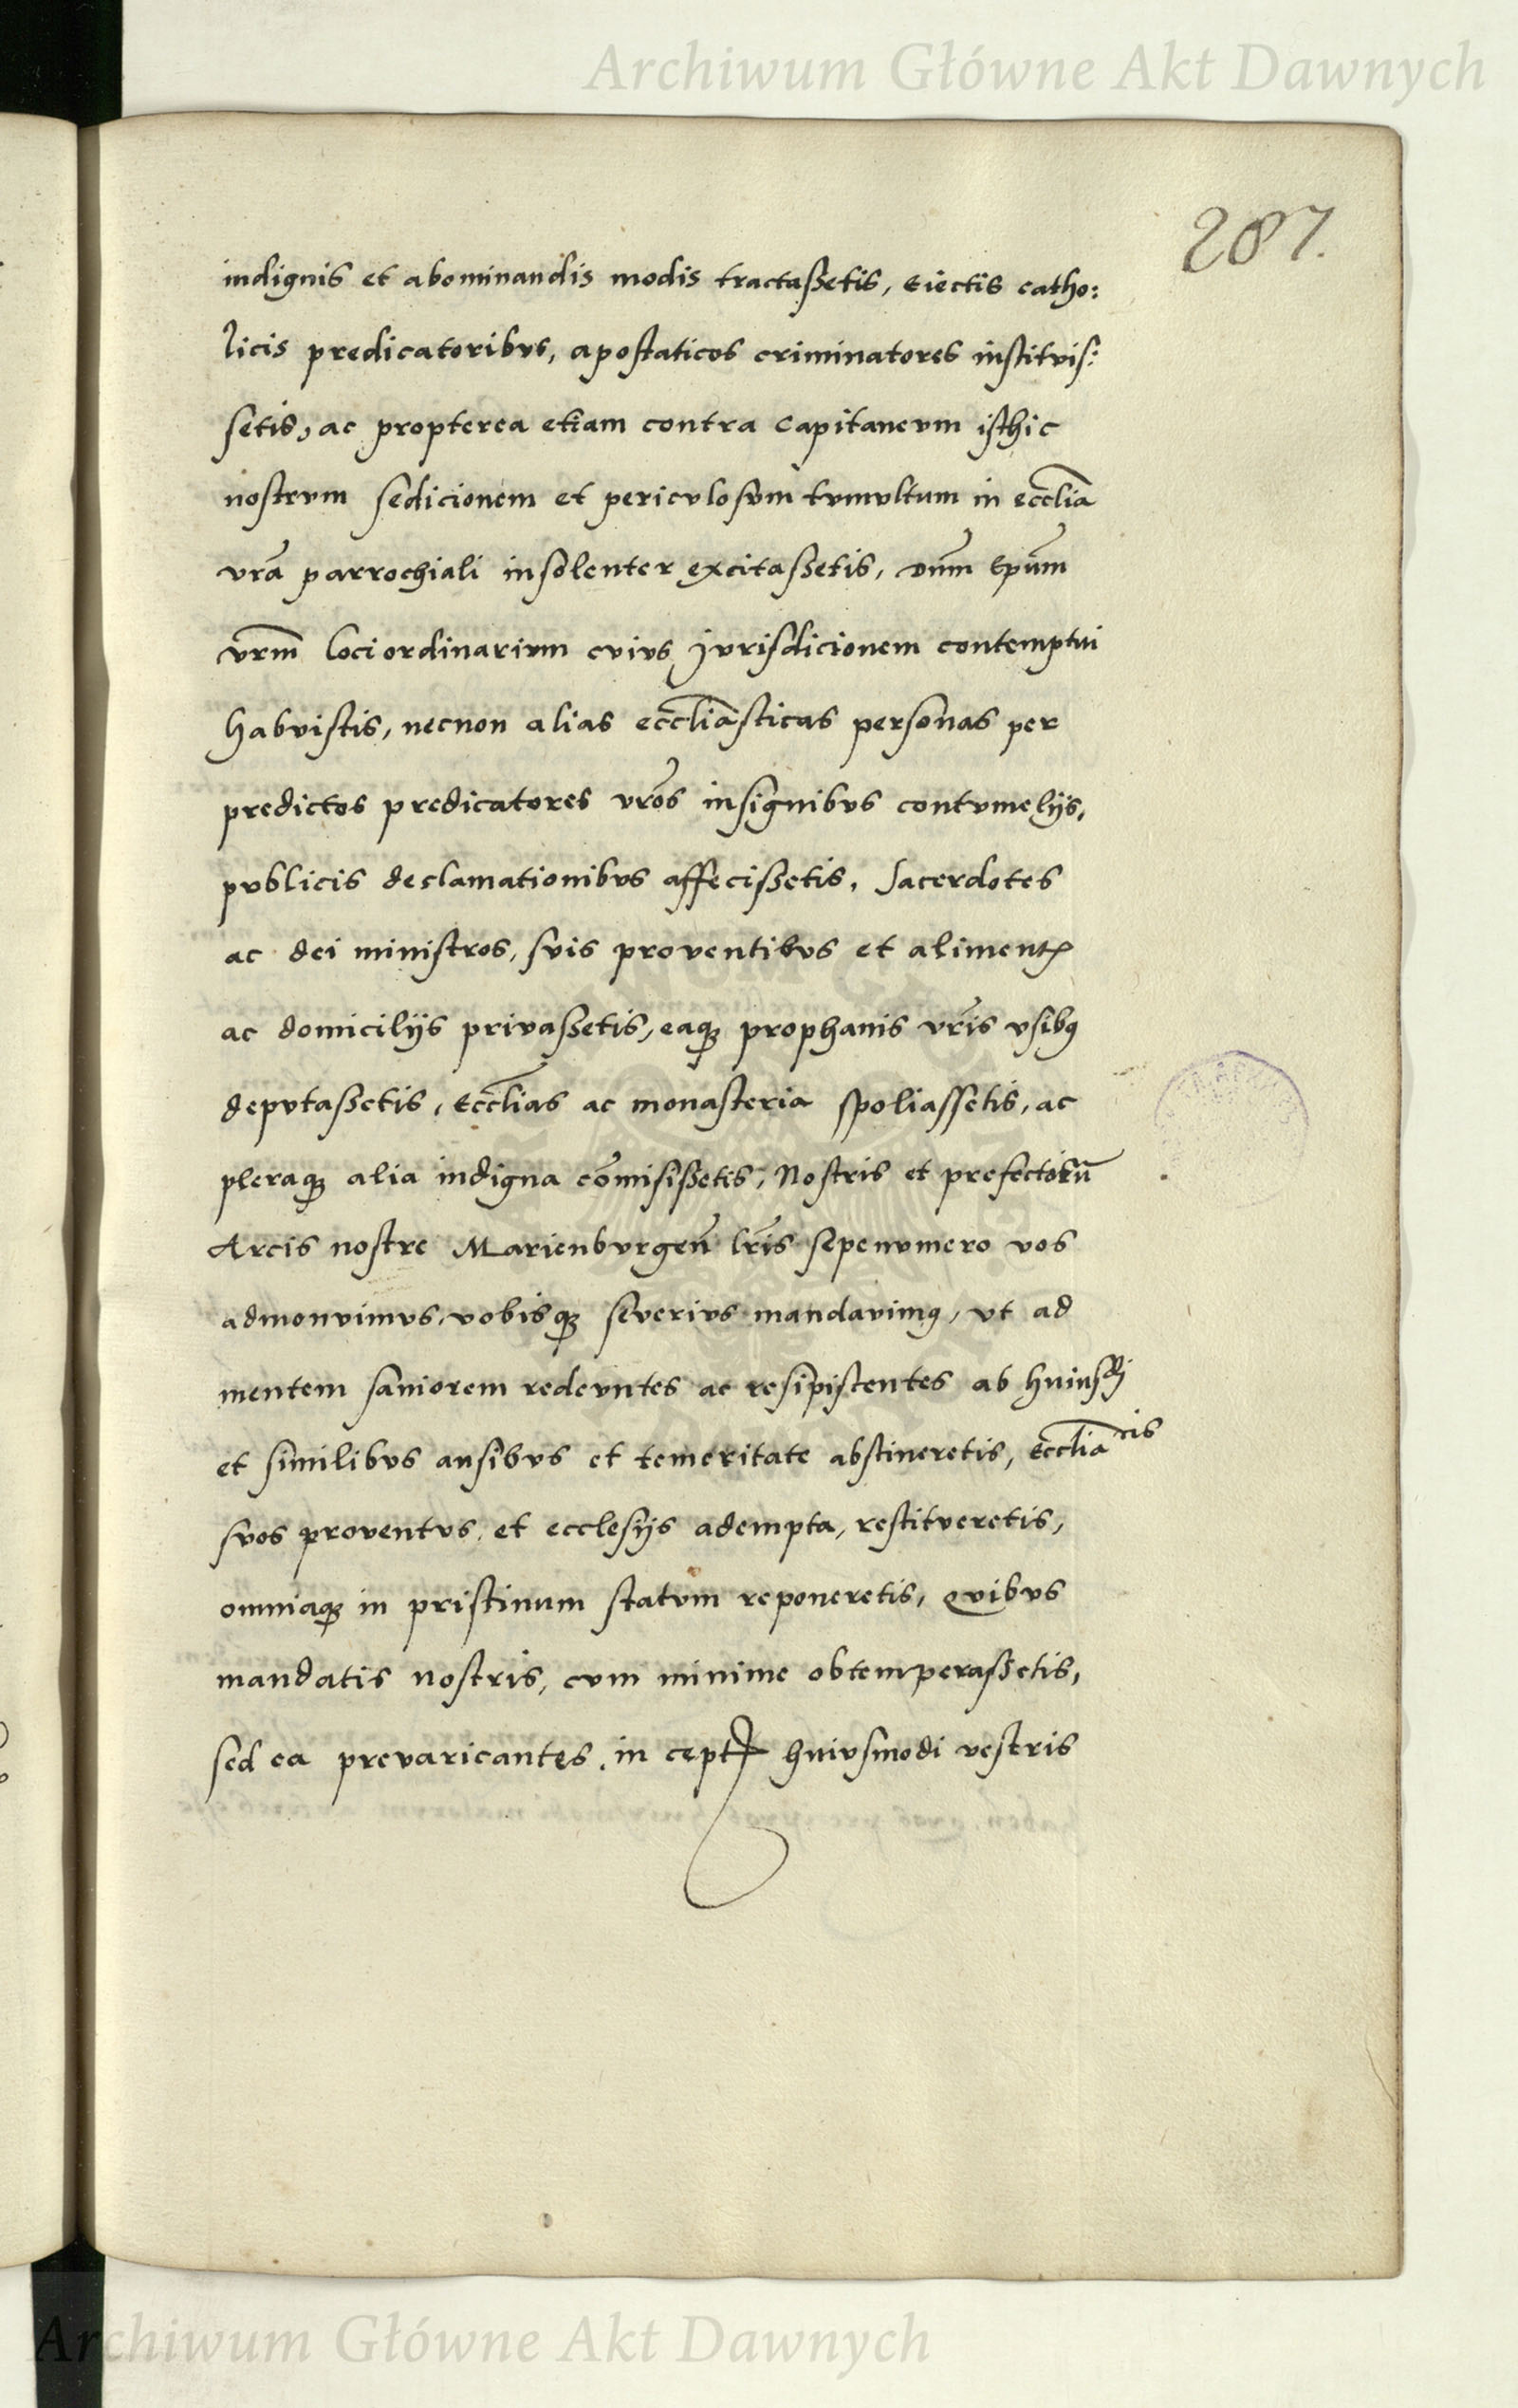 Archiwum Główne Akt Dawnych
287.
indignis et abominandis modis tractaßetis, Eiectis catho:
licis predicatoribvs, apostaticos criminatores institvis:
setis, ac propterea etiam contra Capitanevm isthic
nostrvm sedicionem et pericvlosvm tvmvltum in eccl̅ia
vr̅a parrochiali insolenter excitaßetis, Dn̅m Ep̅um
vrm̅ loci ordinarivm cvivs jvrisdicionem contemptui
habvistis, necnon alias eccl̅iasticas personas per
predictos predicatores vr̅os insignibvs contvmelijs,
pvblicis declamationibvs affecißetis, Sacerdotes
ac dei ministros, svis proventibvs et alimentꝭ
ac domicilijs privaßetis, eaqꝫ prophanis vr̅is vsibꝯ
depvtaßetis, Eccl̅ias ac monasteria spoliassetis, ac
pleraqꝫ alia indigna co̅misißetis, Nostris et prefectoru̅
Arcis nostre Marienbvrgen̅ lr̅is sepenvmero vos
admonvimvs, vobisqꝫ severivs mandavimꝯ, vt ad
mentem saniorem redevntes ac resipiscentes ab huiusdj
et similibvs ausibvs et temeritate abstineretis, Eccl̅iacis
svos proventvs, et ecclesijs adempta, restitveretis,
omniaqꝫ in pristinum statvm reponeretis, Qvibvs
mandatis nostris, cvm minime obtemperaßetis,
sed ea prevaricantes, in ceptꝭ huivsmodi vestris
Archiwum Główne Akt Dawnych